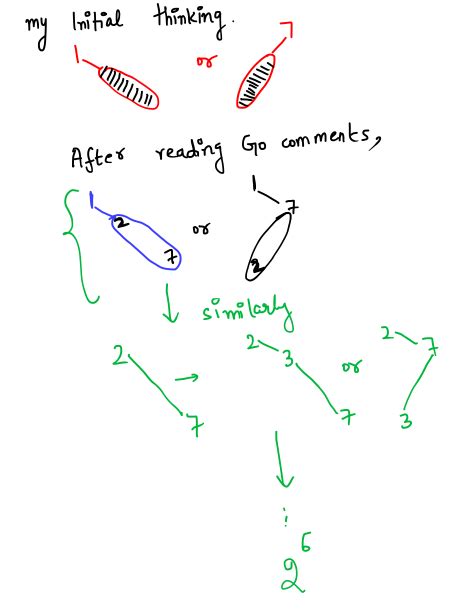 my Initial thinking.
1 or 7
After reading Go comments,
1 2 7 or 1 7 2
similarly
2 7 → 2 3 7 or 2 7 3
⋮
2^6